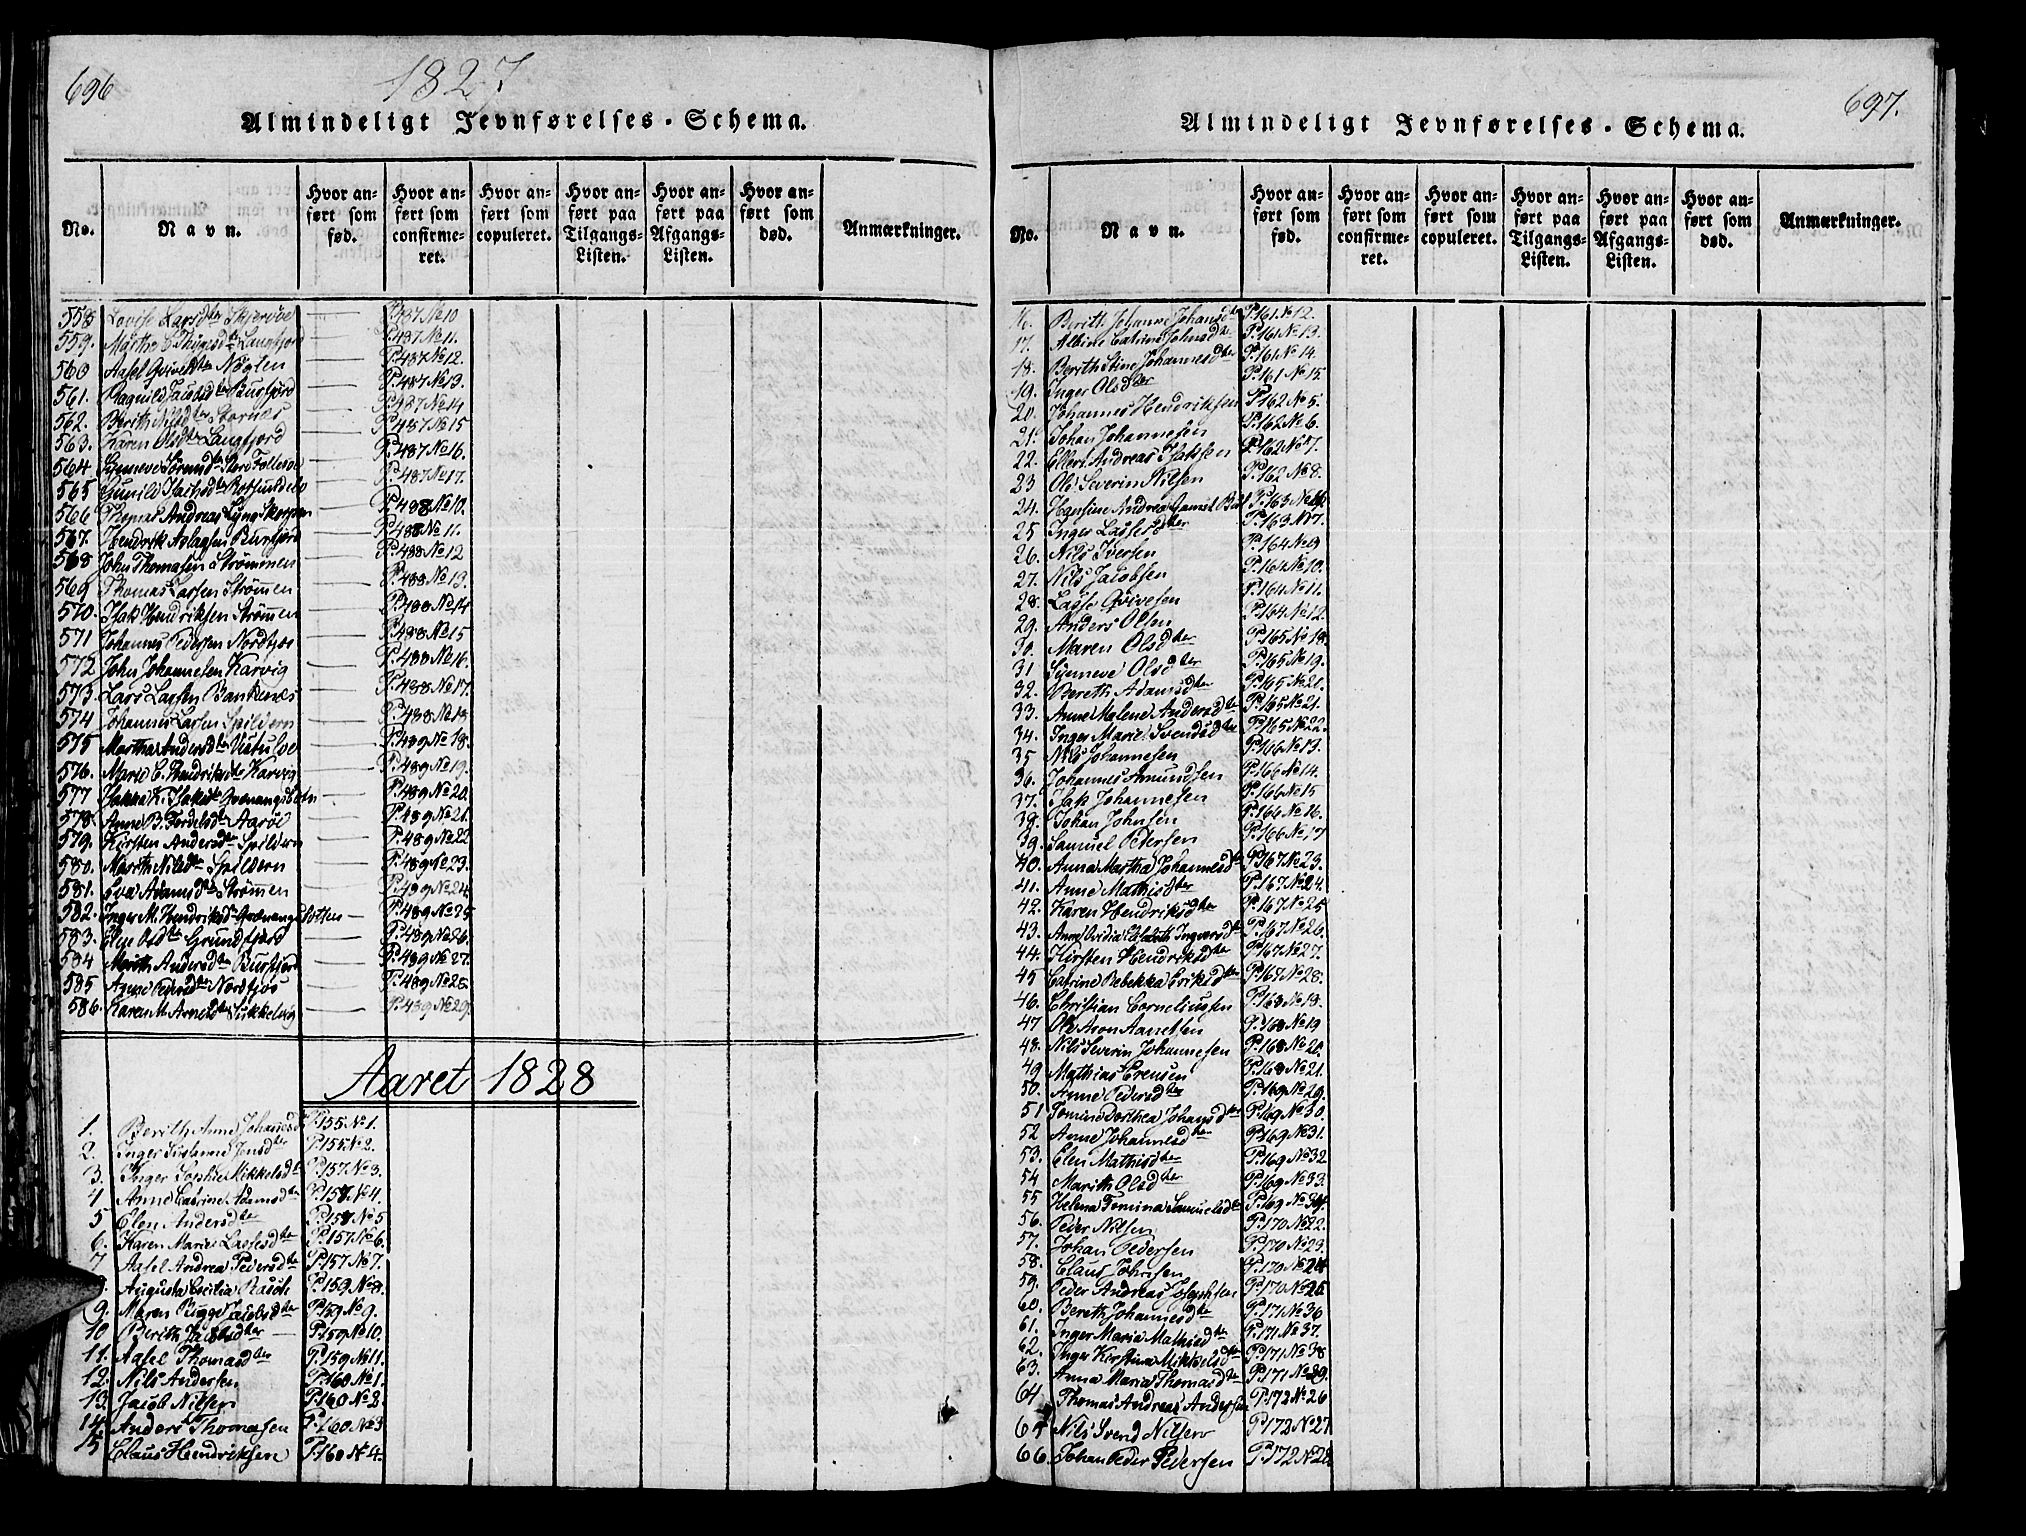 696
1827
Almindeligt Jevnførelses-Schema.
No. Navn. Hvor anført som fød. Hvor anført som confirmeret. Hvor anført som copuleret. Hvor anført paa Tilgangs-Listen. Hvor anført paa Afgangs-Listen. Hvor anført som død. Anmærkninger.
558 Lovise Larsdter Skjervøe P.487 No 10
559. Marthe E Thygesdtr Langfjord P.487 No 11.
560 Aafel Qvivelsdtr Nøglen P.487 No 12.
561. Ragnild Jacobsdtr Burfjord P.487 No 13.
562. Berith Nilsdter Stornes P.487 No 14
563. Karen Olsdtr Langfjord P.487 No 15
564 Synneve P.487 No 16.
565 Gunild Isachsdtr Rotsundelv P.487 No 17.
566 Thomas Andreas Lyng Skorpen P.488 No 10.
567. Hendrik Aslagsen Burfjord P.488 No 11.
568 John Thomasen Strømmen P.488 No 12
569 Thomas Larsen Strømen P.488 No 13.
570. Isak Hendriksen Strømen P.488 No 14
571 Johannes Pedersen Nordfjos P.488 No 15
572 John Johannesen Karvig P.488 No 16.
573. Lars Larsen P.488 No 17.
574 Johannes Larsen Spildern P.488 No 18
575 Martha Andersdtr P.489 No 18.
576. Marie E. Hendriksdtr Karvig P.489 No 19.
577 K. Isaksdtr Qvænangsbotn P.489 No 20.
578. Anne B. Aarøe P.489 No 21.
579. Kirsten Andersdtr Spildern P.489 No 22
580. Marith Nilsdtr Spildern P.489 No 23.
581. Eva Adamsdtr Strømen P.489 No 24.
582. Inger M. Hendriksdtr Qvænangsbotten P.489 No 25
583. Elen Olsdtr Grundfjord P.489 No 26.
584 Marith Andersdtr Burfjord P.489 No 27.
585 Anne Nordfjos P.489 No 28.
586. Karen M. Arnesdtr P.489 No 29.
Aaret 1828
1. Berith Anne Johannesd P.155 No 1.
2. Inger Susanne Jonsdter P.155 No 2.
3. Inger Sophie Mikkelsdtr P.157. No 3.
4 Anne Catrine Adamsdter P.157 No 4.
5 Elen Andersdter P.157 No 5
6. Karen Marie Lassesdter P.157 No 6.
7 Aafel Andrea Pedersdter P.157 No 7.
8. Augusta Cecilia Rasch P.159 No 8.
9. Maren Jacobsdter P.159 No 9.
10 Berith Jacobsdter P.159 No 10.
11. Aafel Thomasdter P.159 No 11.
12. Nils Andersen P.160 No 1.
13. Jacob Nilsen P.160 No 2
14. Anders Thomesen P.160 No 3
15 Claus Hendriksen P.160 No 4.
697.
Almindeligt Jevnførelses-Schema.
No. Navn. Hvor anført som fød. Hvor anført som confirmeret. Hvor anført som copuleret. Hvor anført paa Tilgangs-Listen. Hvor anført paa Afgangs-Listen. Hvor anført som død. Anmærkninger.
16. Berith Johanne Johansdtr P.161 No 12.
17. Albine Catrine Johnsdtr P.161 No 13.
18. Berith Stine Johannesdter P.161 No 14.
19. Inger Olsdter P.161 No 15.
20. Johannes Hendriksen P.162 No 5.
21. Johan Johannesen P.162 No 6.
22. Ellert Andreas Isaksen P.162 No 7.
23 Ole Severin Nilsen P.162 No 8.
24. Hansine Andrea P.163 No 16.
25 Inger Lassesdter P.163 No 17.
26. Nils Iversen P.164 No 9
27. Nils Jacobsen P.164 No 10.
28. Lasse Qvivesen P.164 No 11.
29. Anders Olsen P.164 No 12.
30. Maren Olsdter P.165 No 18.
31 Synneve Olsdter P.165 No 19.
32. Bereth Adamsdter P.165 No 21.
33. Anne Malene Andersdtr P.165 No 21.
34. Inger Marie Svendsdter P.165 No 22.
35 Nils Johannesen P.166 No 13.
36. Johannes Amundsen P.166 No 14.
37. Isak Johannesen P.166 No 15
38. Johan Johnsen P.166 No 16.
39. Samuel Pedersen P.166 No 17
40. Anna Martha Johannesdtr P.167 No 23.
41. Anne Mathisdter P.167 No 24.
42. Karen Hendriksdter P.167 No 25
43. Anne Ovidia Elisabeth Ingversdtr P.167 No 26.
44. Kirsten Hendriksdter P.167 No 27.
45 Catrine Rebekka Eriksdter P.167 No 28.
46. Christian Corneliussen P.168 No 18.
47 Ole Aron Aanetsen P.168 No 19
48. Nils Severin Johannesen P.168 No 20.
49 Mathias Erensen P.168 No 21.
50. Anne Pedersdter P.169 No 29.
51 Tomine Dorthea Johansdter P.169 No 30.
52 Anne Johannesdter P.169 No 31.
53. Elen Mathisdter P.169 No 32
54 Marith Olsdter P.169 No 33.
55 Helena Tomina Samuelsdtr P.169 No 34.
56. Peder Nilsen P.170 No 22.
57. Johan Pedersen P.170 No 23.
58. Claus Johnsen P.170 No 24
59. Peder Andreas Josephsen P.170 No 25
60. Berith Johannesdter P.171 No 36
61. Inger Maria Mathisdter P.171 No 37.
62. Inger Kirstine Mikkelsdtr P.171 No 38
63. Anna Maria Thomasdtr P.171 No 39.
64 Thomas Andreas Andersen P.172 No 26
65 Nils Svend Nilsen P.172 No 27.
66. Johan Peder Pedersen P.172 No 28.